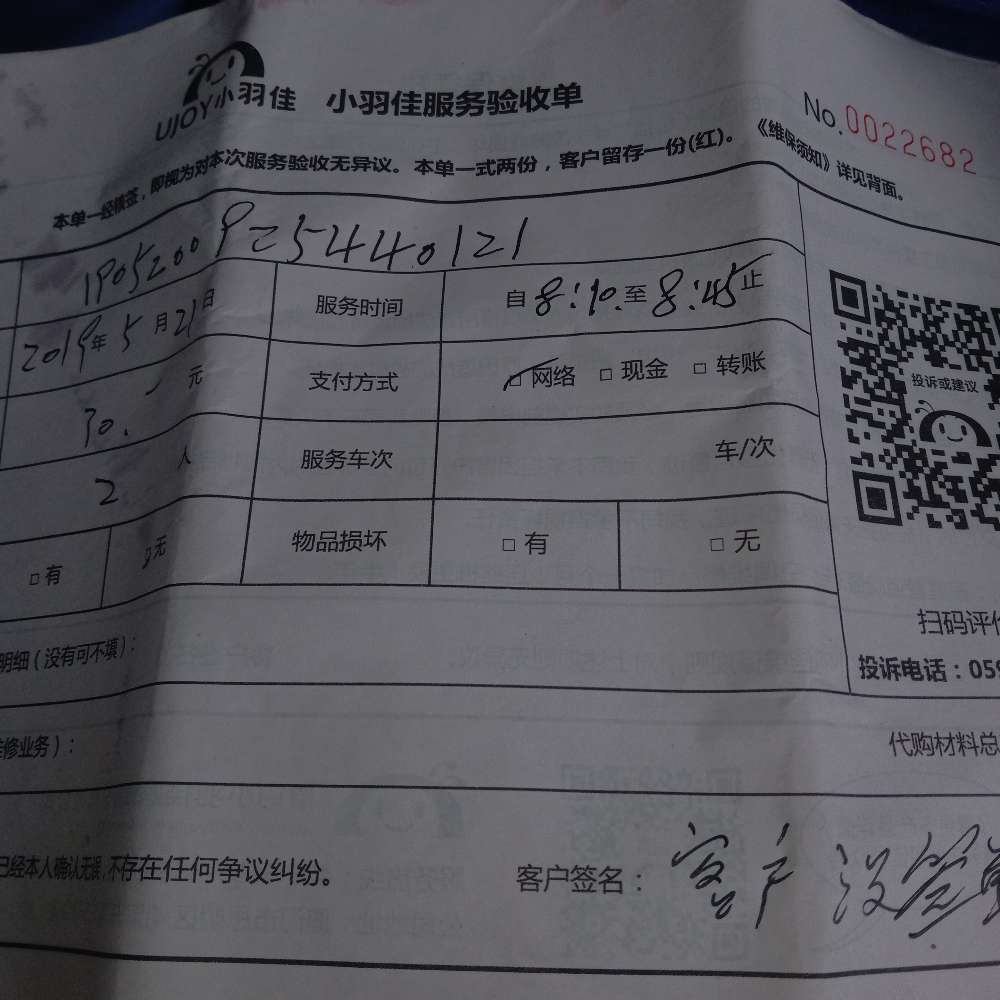 UJOY小羽佳 小羽佳服务验收单
No.0022682
本单一经核签，即视为对本次服务验收无异议。本单一式两份，客户留存一份(红)。《维保须知》详见背面。
19052009254440121
2019年5月21日 服务时间 自8:10至8:45止
30.元 支付方式 □网络 □现金 □转账
2人 服务车次 车/次
□有 无 物品损坏 □有 □无
投诉或建议
扫码评价
明细（没有可不填）：
投诉电话：059
维修业务）：
代购材料总
已经本人确认无误，不存在任何争议纠纷。 客户签名： 客户没签